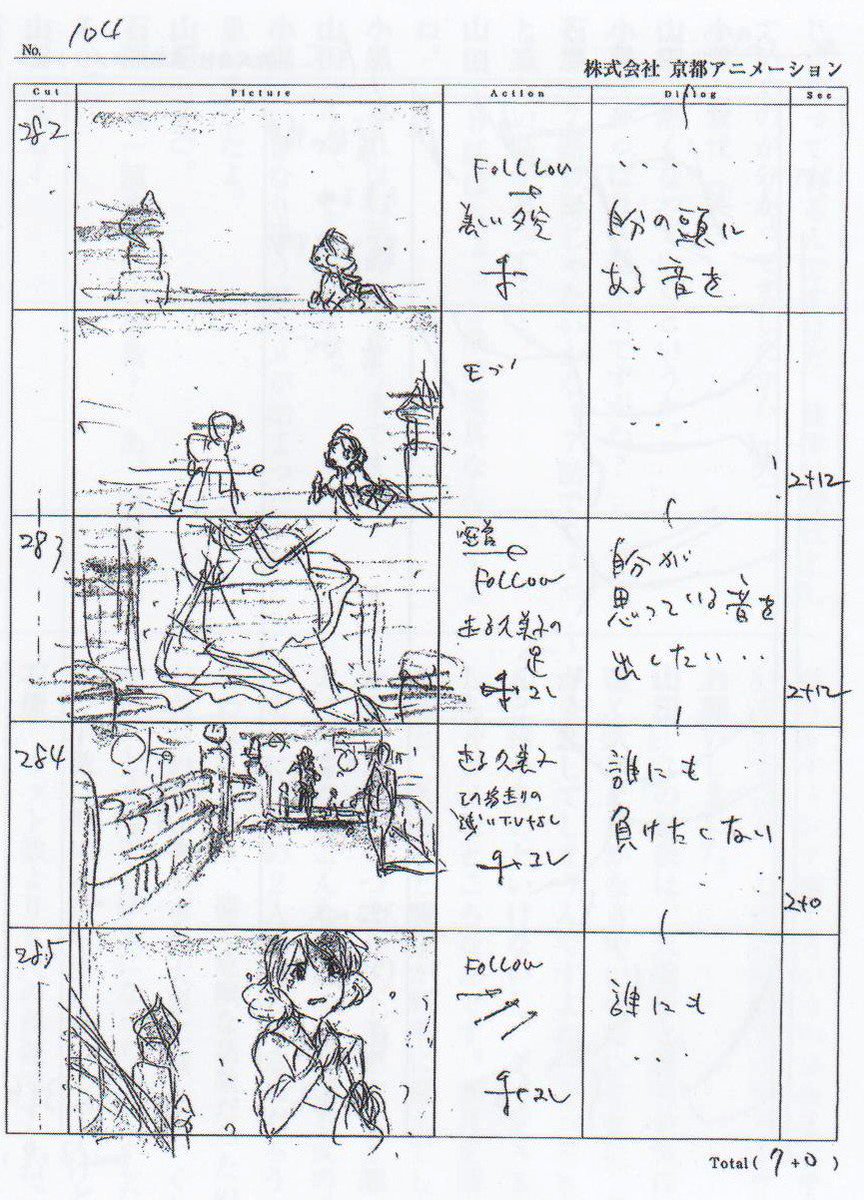 No. 104
株式会社 京都アニメーション
Cut Picture Action Dialog Sec
282
Follow
美しい夕空
....
自分の頭に
ある音を
モブ
2+12
283
Follow
走る久美子の
足
自分が
思っている音を
出したい..
2+12
284
走る久美子
誰にも
負けたくない
2+0
285
Follow
誰にも
...
Total( 7+0 )